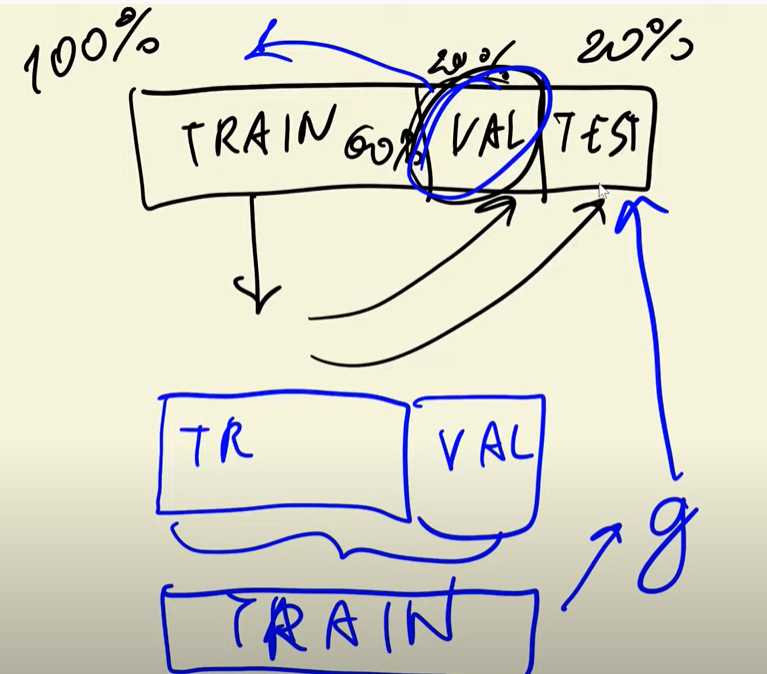 100% 20% 20%
TRAIN 60% VAL TEST
TR VAL
g
TRAIN